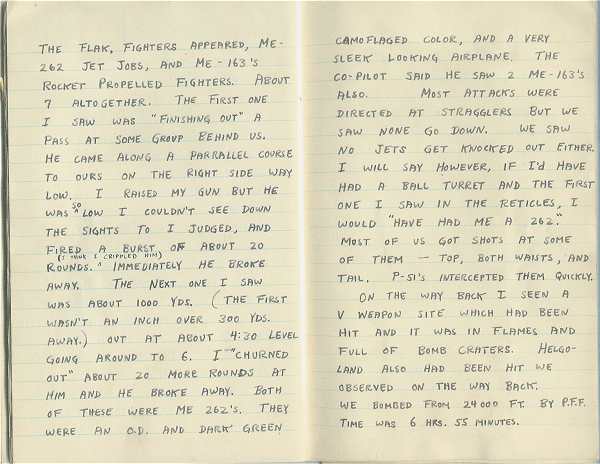 THE FLAK, FIGHTERS APPEARED, ME-
262 JET JOBS, AND ME-163'S
ROCKET PROPELLED FIGHTERS. ABOUT
7 ALTOGETHER. THE FIRST ONE
I SAW WAS "FINISHING OUT" A
PASS AT SOME GROUP BEHIND US.
HE CAME ALONG A PARRALEL COURSE
TO OURS ON THE RIGHT SIDE WAY
LOW. I RAISED MY GUN BUT HE
WAS SO LOW I COULDN'T SEE DOWN
THE SIGHTS TO I JUDGED, AND
FIRED A BURST OF ABOUT 20
(I THINK I CRIPPLED HIM)
ROUNDS. ^ IMMEDIATELY HE BROKE
AWAY. THE NEXT ONE I SAW
WAS ABOUT 1000 YDS. (THE FIRST
WASN'T AN INCH OVER 300 YDS.
AWAY.) OUT AT ABOUT 4:30 LEVEL
GOING AROUND TO 6. I "CHURNED
OUT" ABOUT 20 MORE ROUNDS AT
HIM AND HE BROKE AWAY. BOTH
OF THESE WERE ME 262'S. THEY
WERE AN O.D. AND DARK GREEN
CAMOFLAGED COLOR, AND A VERY
SLEEK LOOKING AIRPLANE. THE
CO-PILOT SAID HE SAW 2 ME-163'S
ALSO. MOST ATTACKS WERE
DIRECTED AT STRAGGLERS BUT WE
SAW NONE GO DOWN. WE SAW
NO JETS GET KNOCKED OUT EITHER.
I WILL SAY HOWEVER, IF I'D HAVE
HAD A BALL TURRET AND THE FIRST
ONE I SAW IN THE RETICLES, I
WOULD "HAVE HAD ME A 262."
MOST OF US GOT SHOTS AT SOME
OF THEM — TOP, BOTH WAISTS, AND
TAIL. P-51'S INTERCEPTED THEM QUICKLY.
ON THE WAY BACK I SEEN A
V WEAPON SITE WHICH HAD BEEN
HIT AND IT WAS IN FLAMES AND
FULL OF BOMB CRATERS. HELGO-
LAND ALSO HAD BEEN HIT WE
OBSERVED ON THE WAY BACK.
WE BOMBED FROM 24000 FT. BY P.F.F.
TIME WAS 6 HRS. 55 MINUTES.